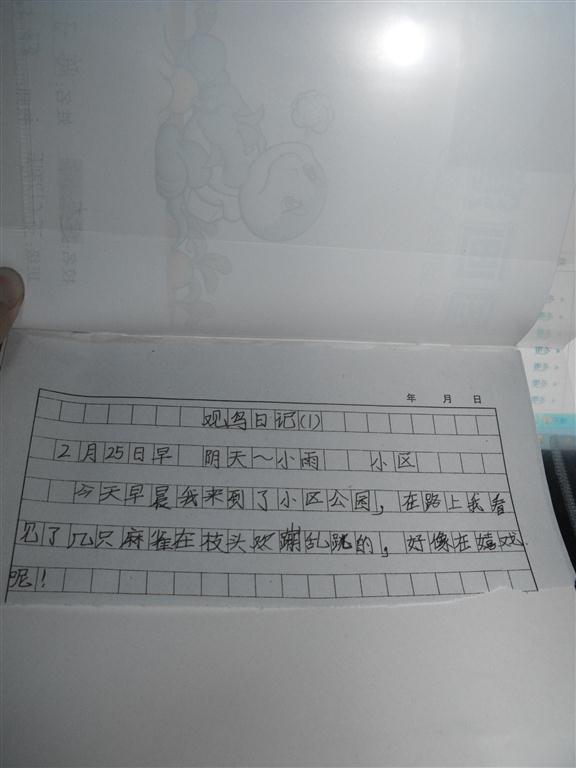 年 月 日
观鸟日记(1)
2月25日早 阴天~小雨 小区
今天早晨我来到了小区公园，在路上我看
见了几只麻雀在枝头欢蹦乱跳的，好像在嬉戏
呢！